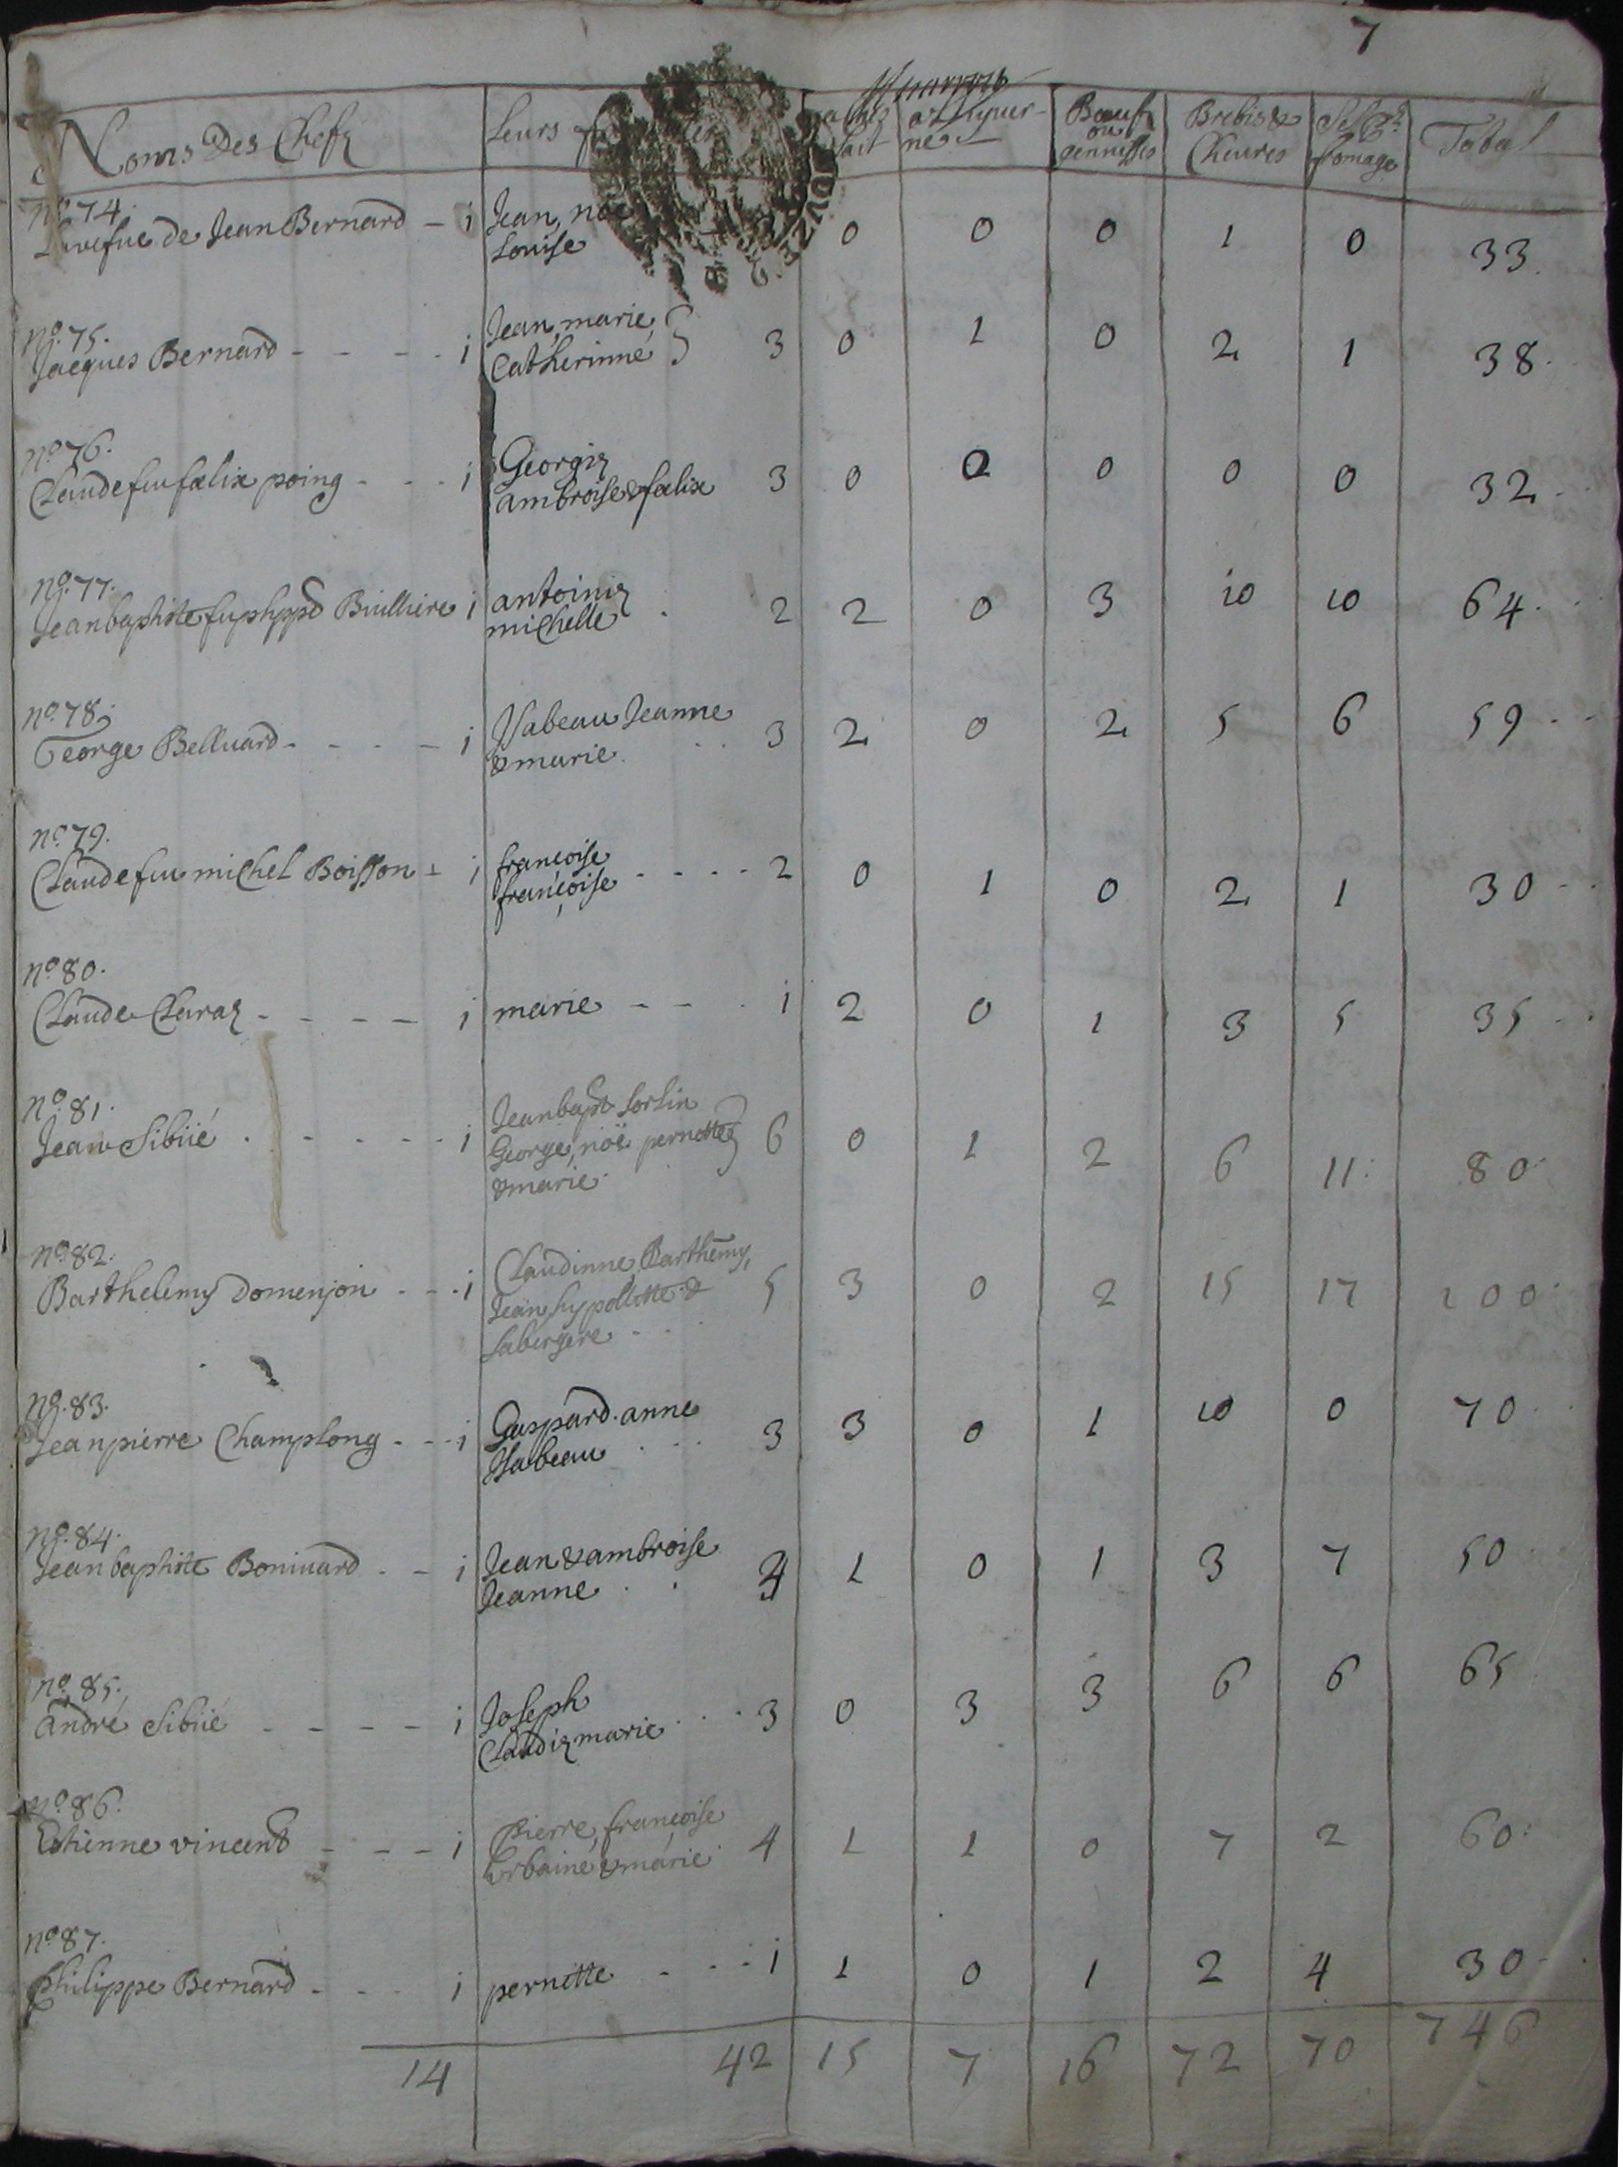 7
Noms Des Chefz Leurs Bœufz ou Brebis & Sel
lait Chevres fromage Total
no. 74.
La vefue de Jean Bernard - i Jean, noe 0 0 0 1 0 33.
Louise
no. 75.
Jacques Bernard - - - - i Jean, marie, 3 0 1 0 2 1 38.
Catherinne
no. 76.
Claude fiu fælix poing - - - i Georgiz 3 0 2 0 0 0 32.
ambroise & fælix
no. 77.
Jean baptiste fiu phppe i antoiniz 2 2 0 3 10 10 64.
michelle
no. 78.
George Belluard - - - - i Isabeau Jeanne 3 2 0 2 5 6 59
& marie.
no. 79.
Claude fiu michel Boisson - i francoise 2 0 1 0 2 1 30
françoise
no. 80.
Claude Claraz - - - - i marie - - - i 2 0 1 3 5 35
no. 81.
Jean Sibüé - - - - - i Jean bapt. Sorlin 6 0 1 2 6 11. 80
George, noë pernette
& marie.
no. 82.
Barthelemy Domenjon - - - i Claudinne, Barthemy, 5 3 0 2 15 17 100
Jean hypollitte &
la bergere
no. 83.
Jean pierre Champlong - - - i Gaspard. anne 3 3 0 1 10 0 70
Isabeau
no. 84.
Jean baptiste Boniuard - - i Jean & ambroise 1 0 1 3 7 50
Jeanne
no. 85.
andré Sibüé - - - - i Joseph 3 0 3 3 6 6 65
Claudiz marie
no. 86.
Estienne vincent - - - i Pierre, françoise 4 1 1 0 7 2 60
Urbaine & marie
no. 87.
Philippe Bernard - - - i pernette - - - 1 1 0 1 2 4 30
14 42 15 7 16 72 70 746